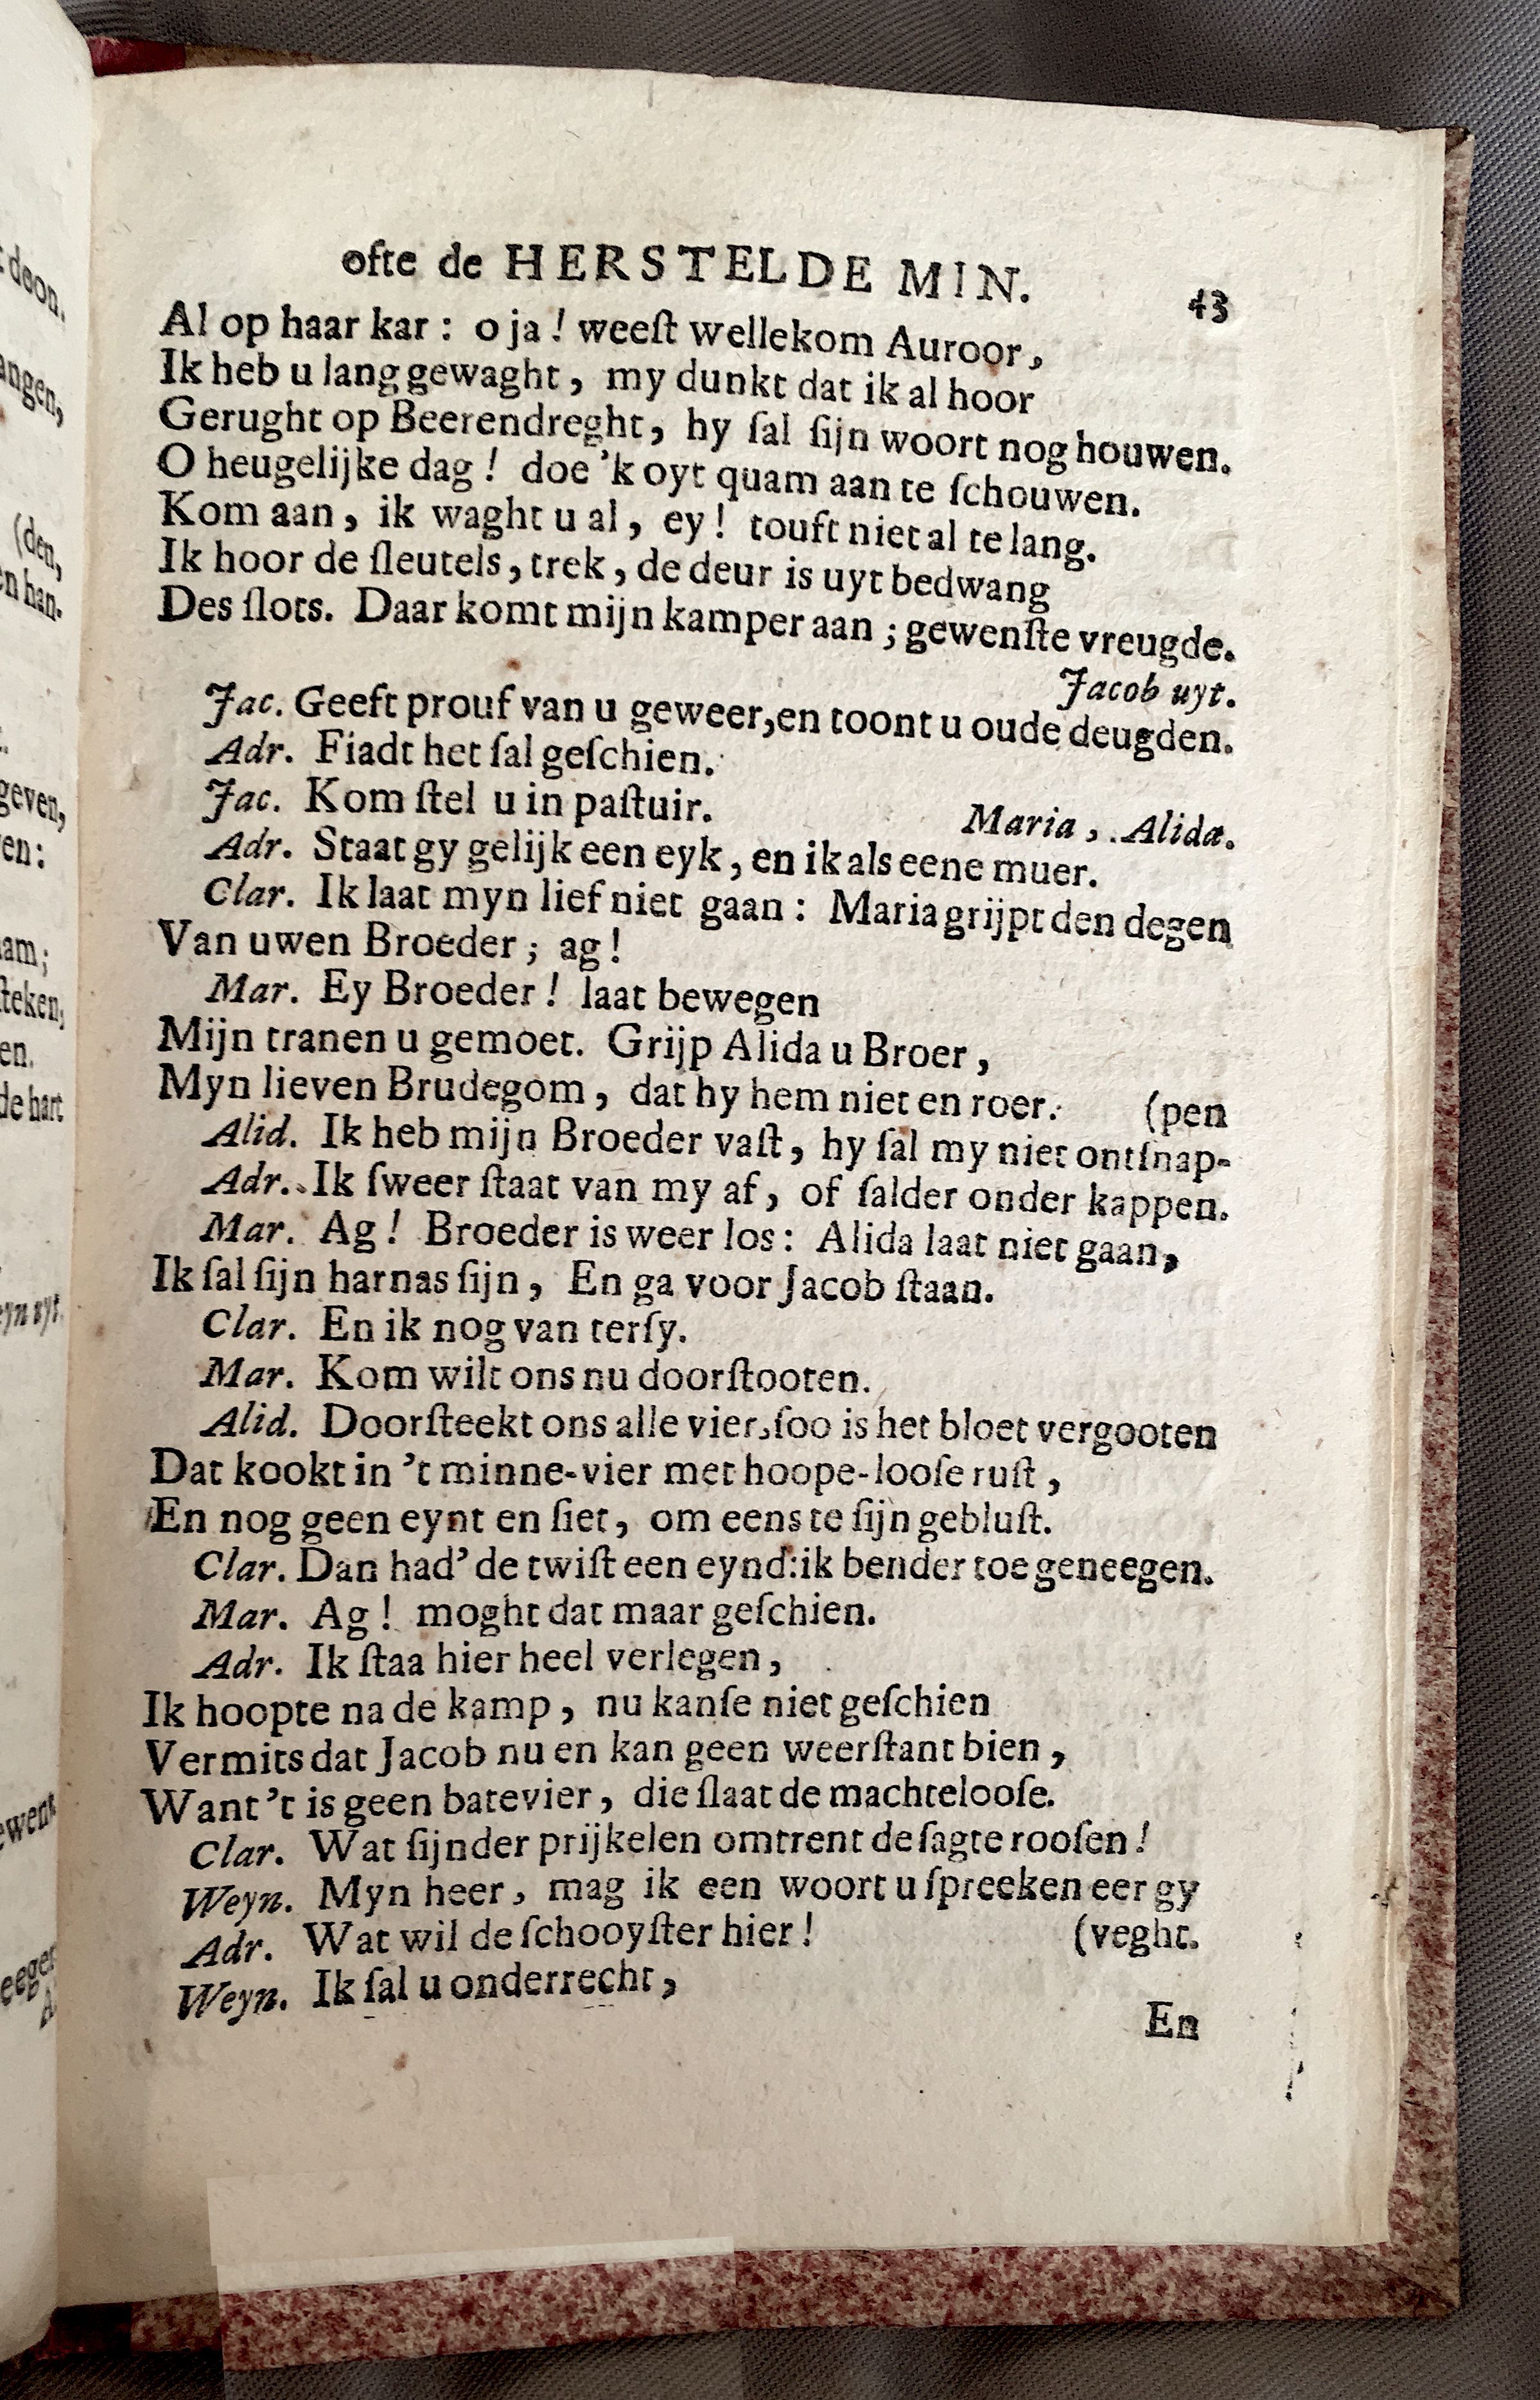 ofte de HERSTELDE MIN. 43
Al op haar kar : o ja ! weeſt wellekom Auroor,
Ik heb u lang gewaght, my dunkt dat ik al hoor
Gerught op Beerendreght, hy ſal ſijn woort nog houwen.
O heugelijke dag ! doe 'k oyt quam aan te ſchouwen.
Kom aan, ik waght u al, ey ! touft niet al te lang.
Ik hoor de ſleutels, trek, de deur is uyt bedwang
Des ſlots. Daar komt mijn kamper aan ; gewenſte vreugde.
Jacob uyt.
Jac. Geeft prouf van u geweer, en toont u oude deugden.
Adr. Fiadt het ſal geſchien.
Jac. Kom ſtel u in paſtuir. Maria, Alida.
Adr. Staat gy gelijk een eyk, en ik als eene muer.
Clar. Ik laat myn lief niet gaan : Maria grijpt den degen
Van uwen Broeder ; ag !
Mar. Ey Broeder ! laat bewegen
Mijn tranen u gemoet. Grijp Alida u Broer,
Myn lieven Brudegom, dat hy hem niet en roer. (pen
Alid. Ik heb mijn Broeder vaſt, hy ſal my niet ontſnap-
Adr. Ik ſweer ſtaat van my af, of ſalder onder kappen.
Mar. Ag ! Broeder is weer los : Alida laat niet gaan,
Ik ſal ſijn harnas ſijn, En ga voor Jacob ſtaan.
Clar. En ik nog van terſy.
Mar. Kom wilt ons nu doorſtooten.
Alid. Doorſteekt ons alle vier, ſoo is het bloet vergooten
Dat kookt in 't minne-vier met hoope-looſe ruſt,
En nog geen eynt en ſiet, om eens te ſijn gebluſt.
Clar. Dan had' de twiſt een eynd: ik bender toe geneegen.
Mar. Ag ! moght dat maar geſchien.
Adr. Ik ſtaa hier heel verlegen,
Ik hoopte na de kamp, nu kanſe niet geſchien
Vermits dat Jacob nu en kan geen weerſtant bien,
Want 't is geen batevier, die ſlaat de machteloose.
Clar. Wat ſijnder prijkelen omtrent de ſagte rooſen !
Weyn. Myn heer, mag ik een woort u ſpreeken eer gy
Adr. Wat wil de ſchooyſter hier ! (veght.
Weyn. Ik ſal u onderrecht,
En